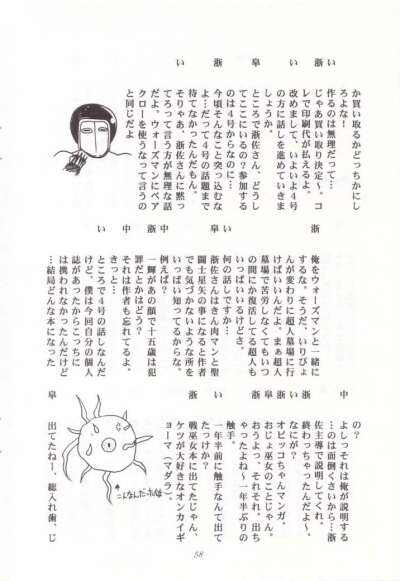 い 浙 い 皐 浙 い
か買い取るかどっちかにし
ろよな!
作るのは無理だって…
じゃあ買い取り決定〜。コ
レで印刷代が払えるよ。
改めまして、いよいよ4号
の方に話しを進めていきま
しょうか。
ところで浙佐さん、どうし
てここにいるの?参加する
のは4号からなのに…
今頃そんなこと突っ込むな
よ…だって4号の話題まで
待てなかったんだもん。
そりゃあ、浙佐さんに黙っ
てろって言う方が無理な話
だよ、ウォーズマンにベア
クローを使うなって言うの
と同じだよ
浙 い 皐 中 浙 中 い
俺をウォーズマンと一緒に
するな。そうだ、いりびょ
んが変わりに超人墓場に行
けばいいんだよ、まぁ超人
墓場で苦労しなくてもいつ
の間にか復活してる超人も
いっぱいいるけどさ。
何の話しですか…
浙佐さんはきん肉マンと聖
闘士星矢の事になると作者
でも気づかないような所を
いっぱい知ってるからな。
例えば?
一輝があの顔で十五歳は犯
罪だとかはどう?
それは作者も忘れてるよ。
きっと…
ところで4号の話しなんだ
けど、僕は今回自分の個人
誌があったからこっちに
は携われなかったんだけど
…結局どんな本になった
中 浙 い 皐 浙 皐
の?
よしっそれは俺が説明する
…のは面倒くさいから…浙
佐主導で説明してくれ。
終わっちゃったんだよ〜。
なにが?
オビッコちゃんマンガ。
おじょ巫女のことじゃん。
おうよっ、それそれ。出ち
ゃったよね〜一年半ぶりの
触手。
一年半前に触手なんて出て
たっけか?
戦巫女本に出てたじゃん、
ケツが大好きなオンカイギ
ョーマ(マダラ)。
出てたねー、総入れ歯、じ
こんなんだったな
58